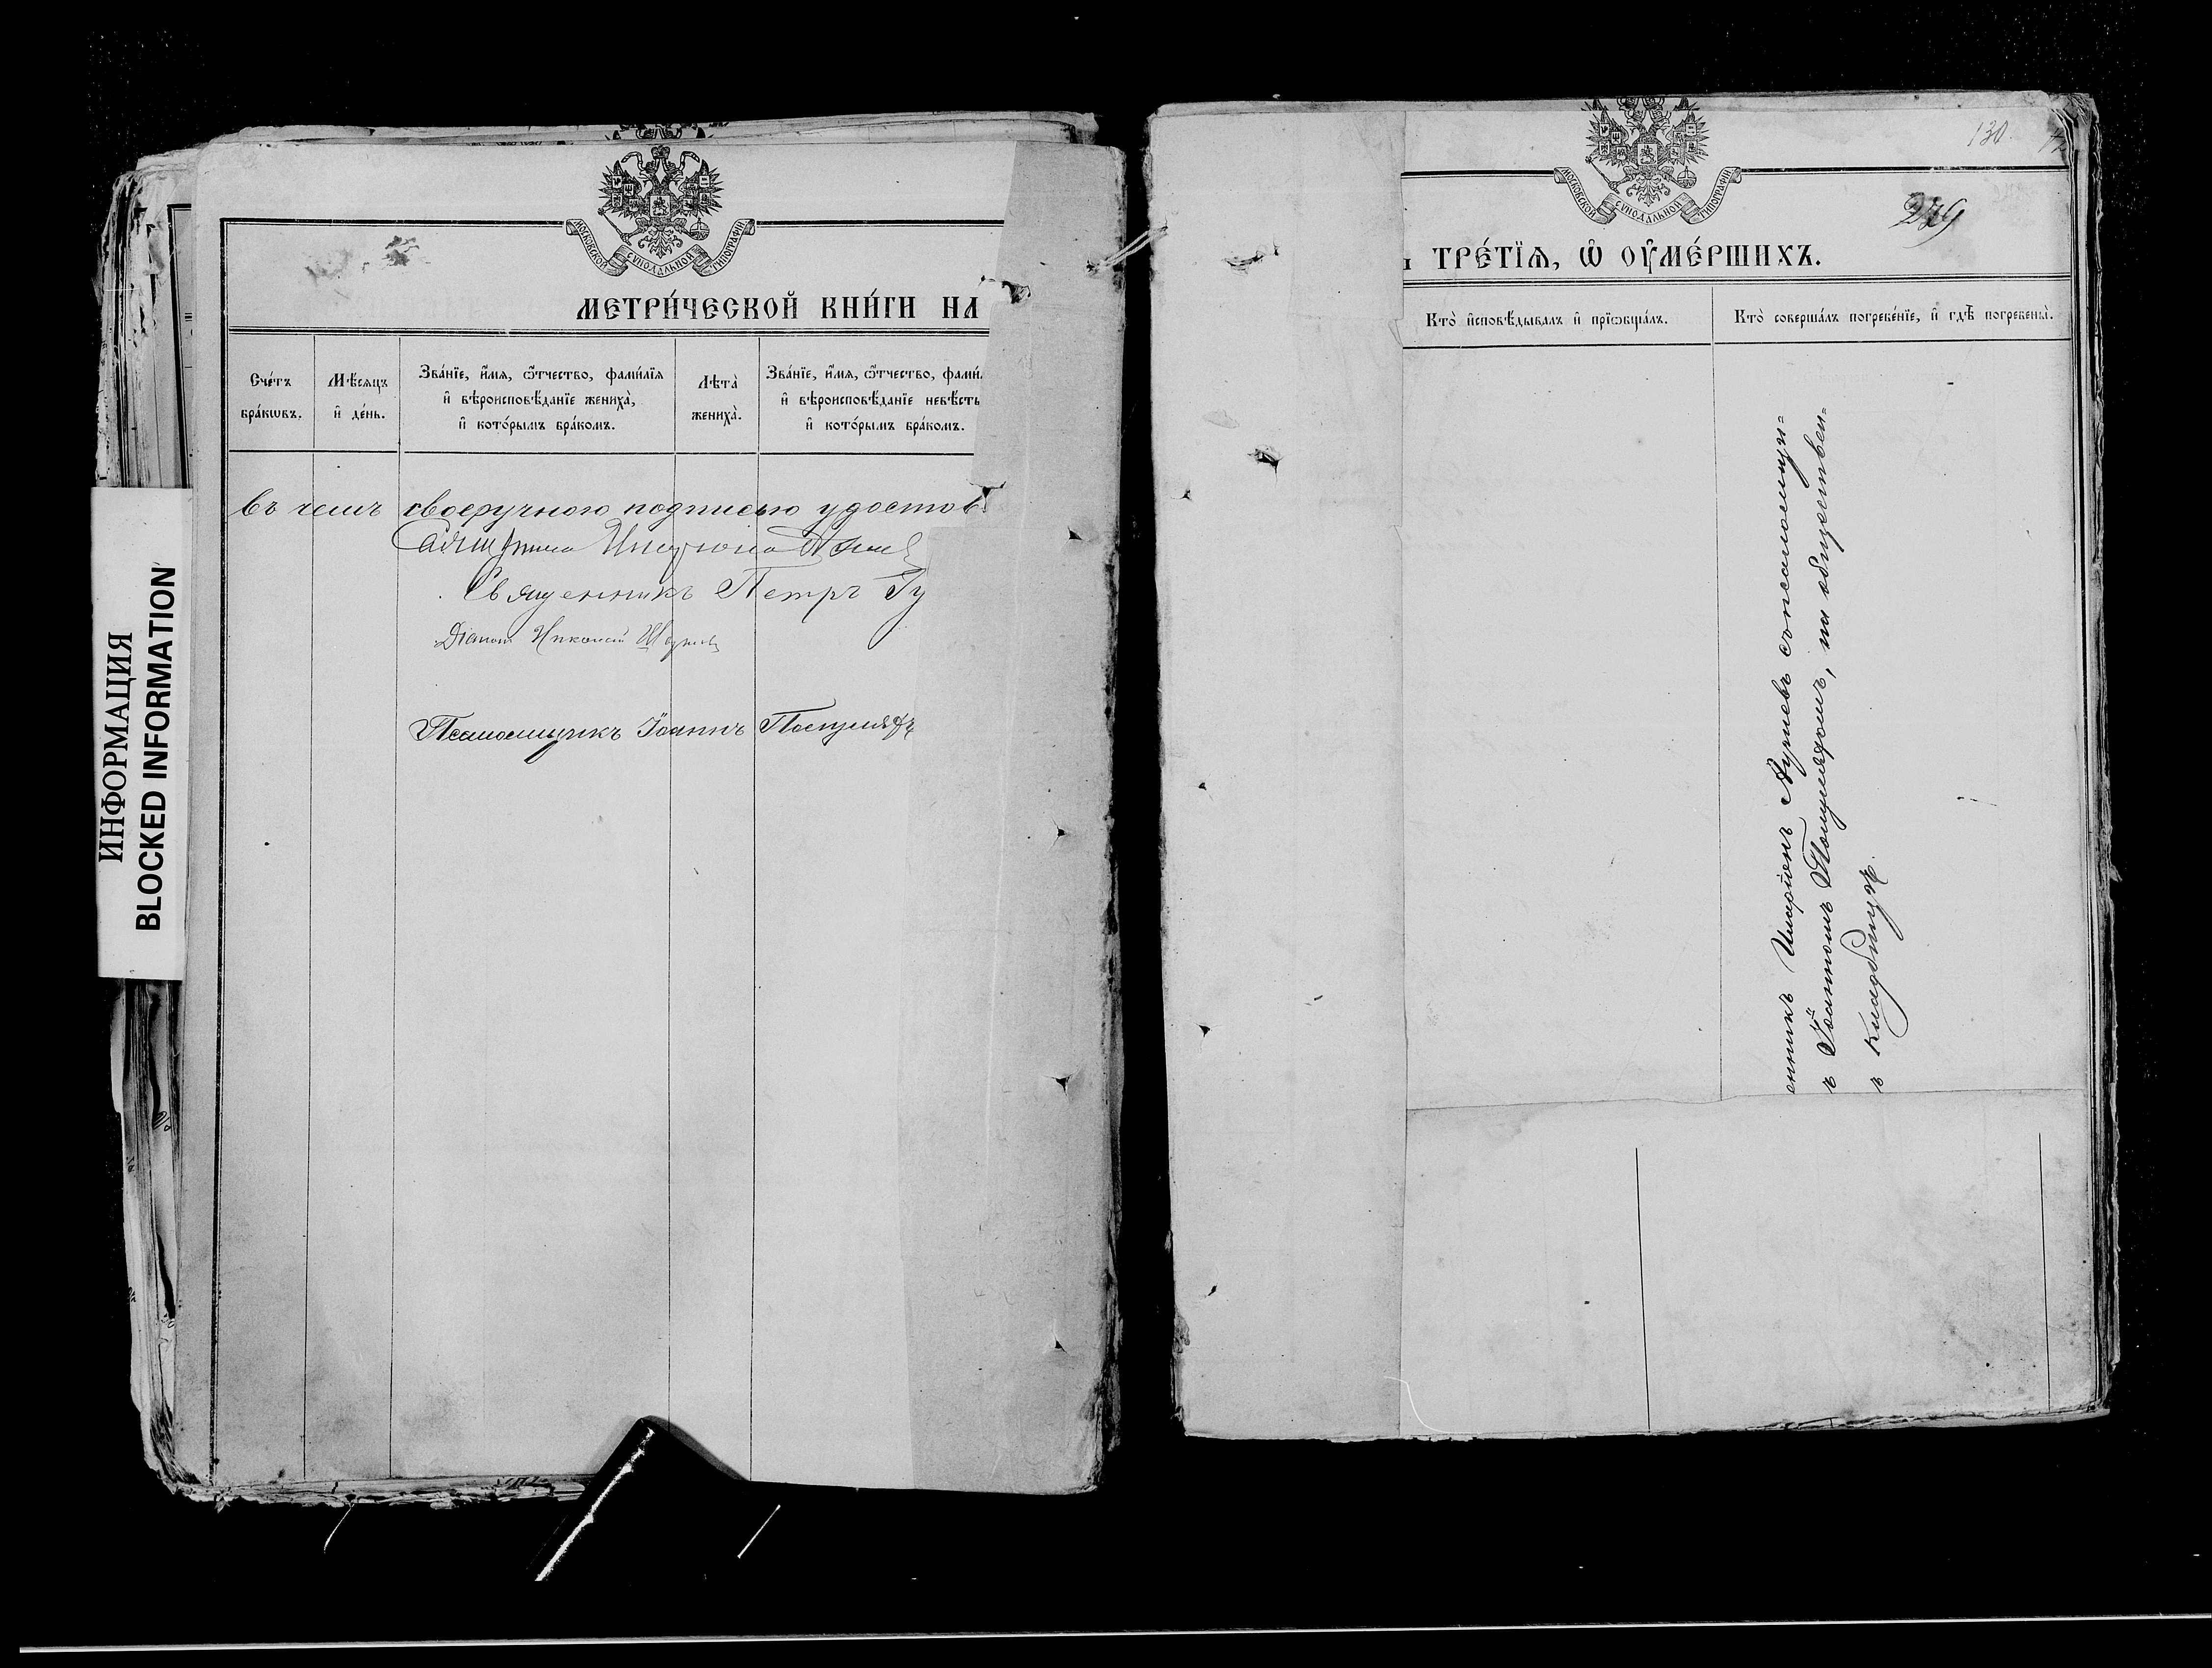 ИНФОРМАЦИЯ
BLOCKED INFORMATION
МОСКОВСКОЙ СѴНОДАЛЬНОЙ ТИПОГРАФІИ
МЕТРИ́ЧЕСКОЙ КНИ́ГИ НА
Сче́тъ бра́кѡвъ.
Мѣ́сяцъ и҆ де́нь.
Зва́нїе, и҆́мя, ѻ҆́тчество, фами́лїя и҆ вѣроисповѣ́данїе жениха̀, и҆ кото́рымъ бра́комъ.
Лѣ́та жениха̀.
Зва́нїе, и҆́мя, ѻ҆́тчество, фами́ и҆ вѣроисповѣ́данїе невѣ́сты и҆ кото́рымъ бра́комъ.
въ чемъ своеручною подписью удостов
Священникъ Петръ Гу
Діаконъ Николай
Псаломщикъ Іоаннъ
130
МОСКОВСКОЙ СѴНОДАЛЬНОЙ ТИПОГРАФІИ
279
ТРЕ́ТЇѦ, Ѡ ОУ҆МЕ́РШИХЪ.
Кто̀ и҆сповѣ́дывалъ и҆ прїѡбща́лъ.
Кто̀ соверша́лъ погребе́нїе, и҆ гдѣ̀ погребены̀.
енникъ Иларіонъ съ псаломщи=
ъ Іоанномъ, на обществен=
ъ кладбищѣ.